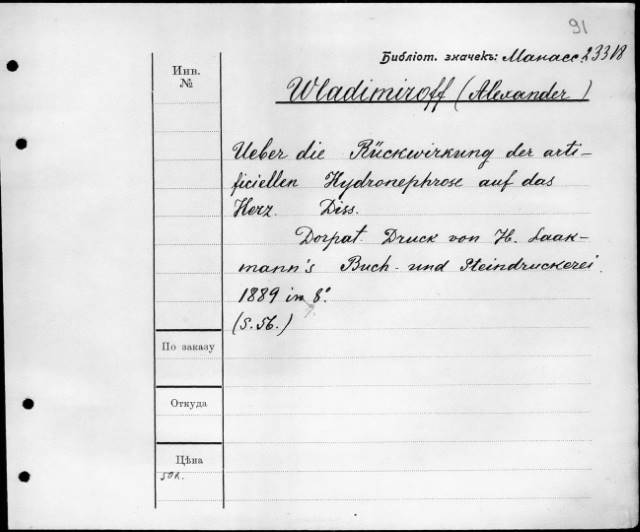 91
Библіот. значекъ: Манасс 23318
Инв.
№
Wladimiroff (Alexander)
Ueber die Rückwirkung der arti-
ficiellen Hydronephrose auf das
Herz. Diss.
Dorpat. Druck von H. Laak-
mann's Buch- und Steindruckerei.
1889 in 8º.
(S. 56.)
По заказу
Откуда
Цѣна
50к.